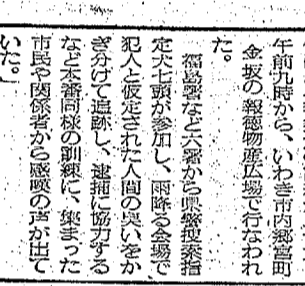 午前九時から、いわき市内郷宮町
金坂の報徳物産広場で行なわれ
た。
福島署など六署から県警捜索指
定犬七頭が参加し、雨降る会場で
犯人と仮定された人間の臭いをか
ぎ分けて追跡し、逮捕に協力する
など本番同様の訓練に、集まった
市民や関係者から感嘆の声が出て
いた。」